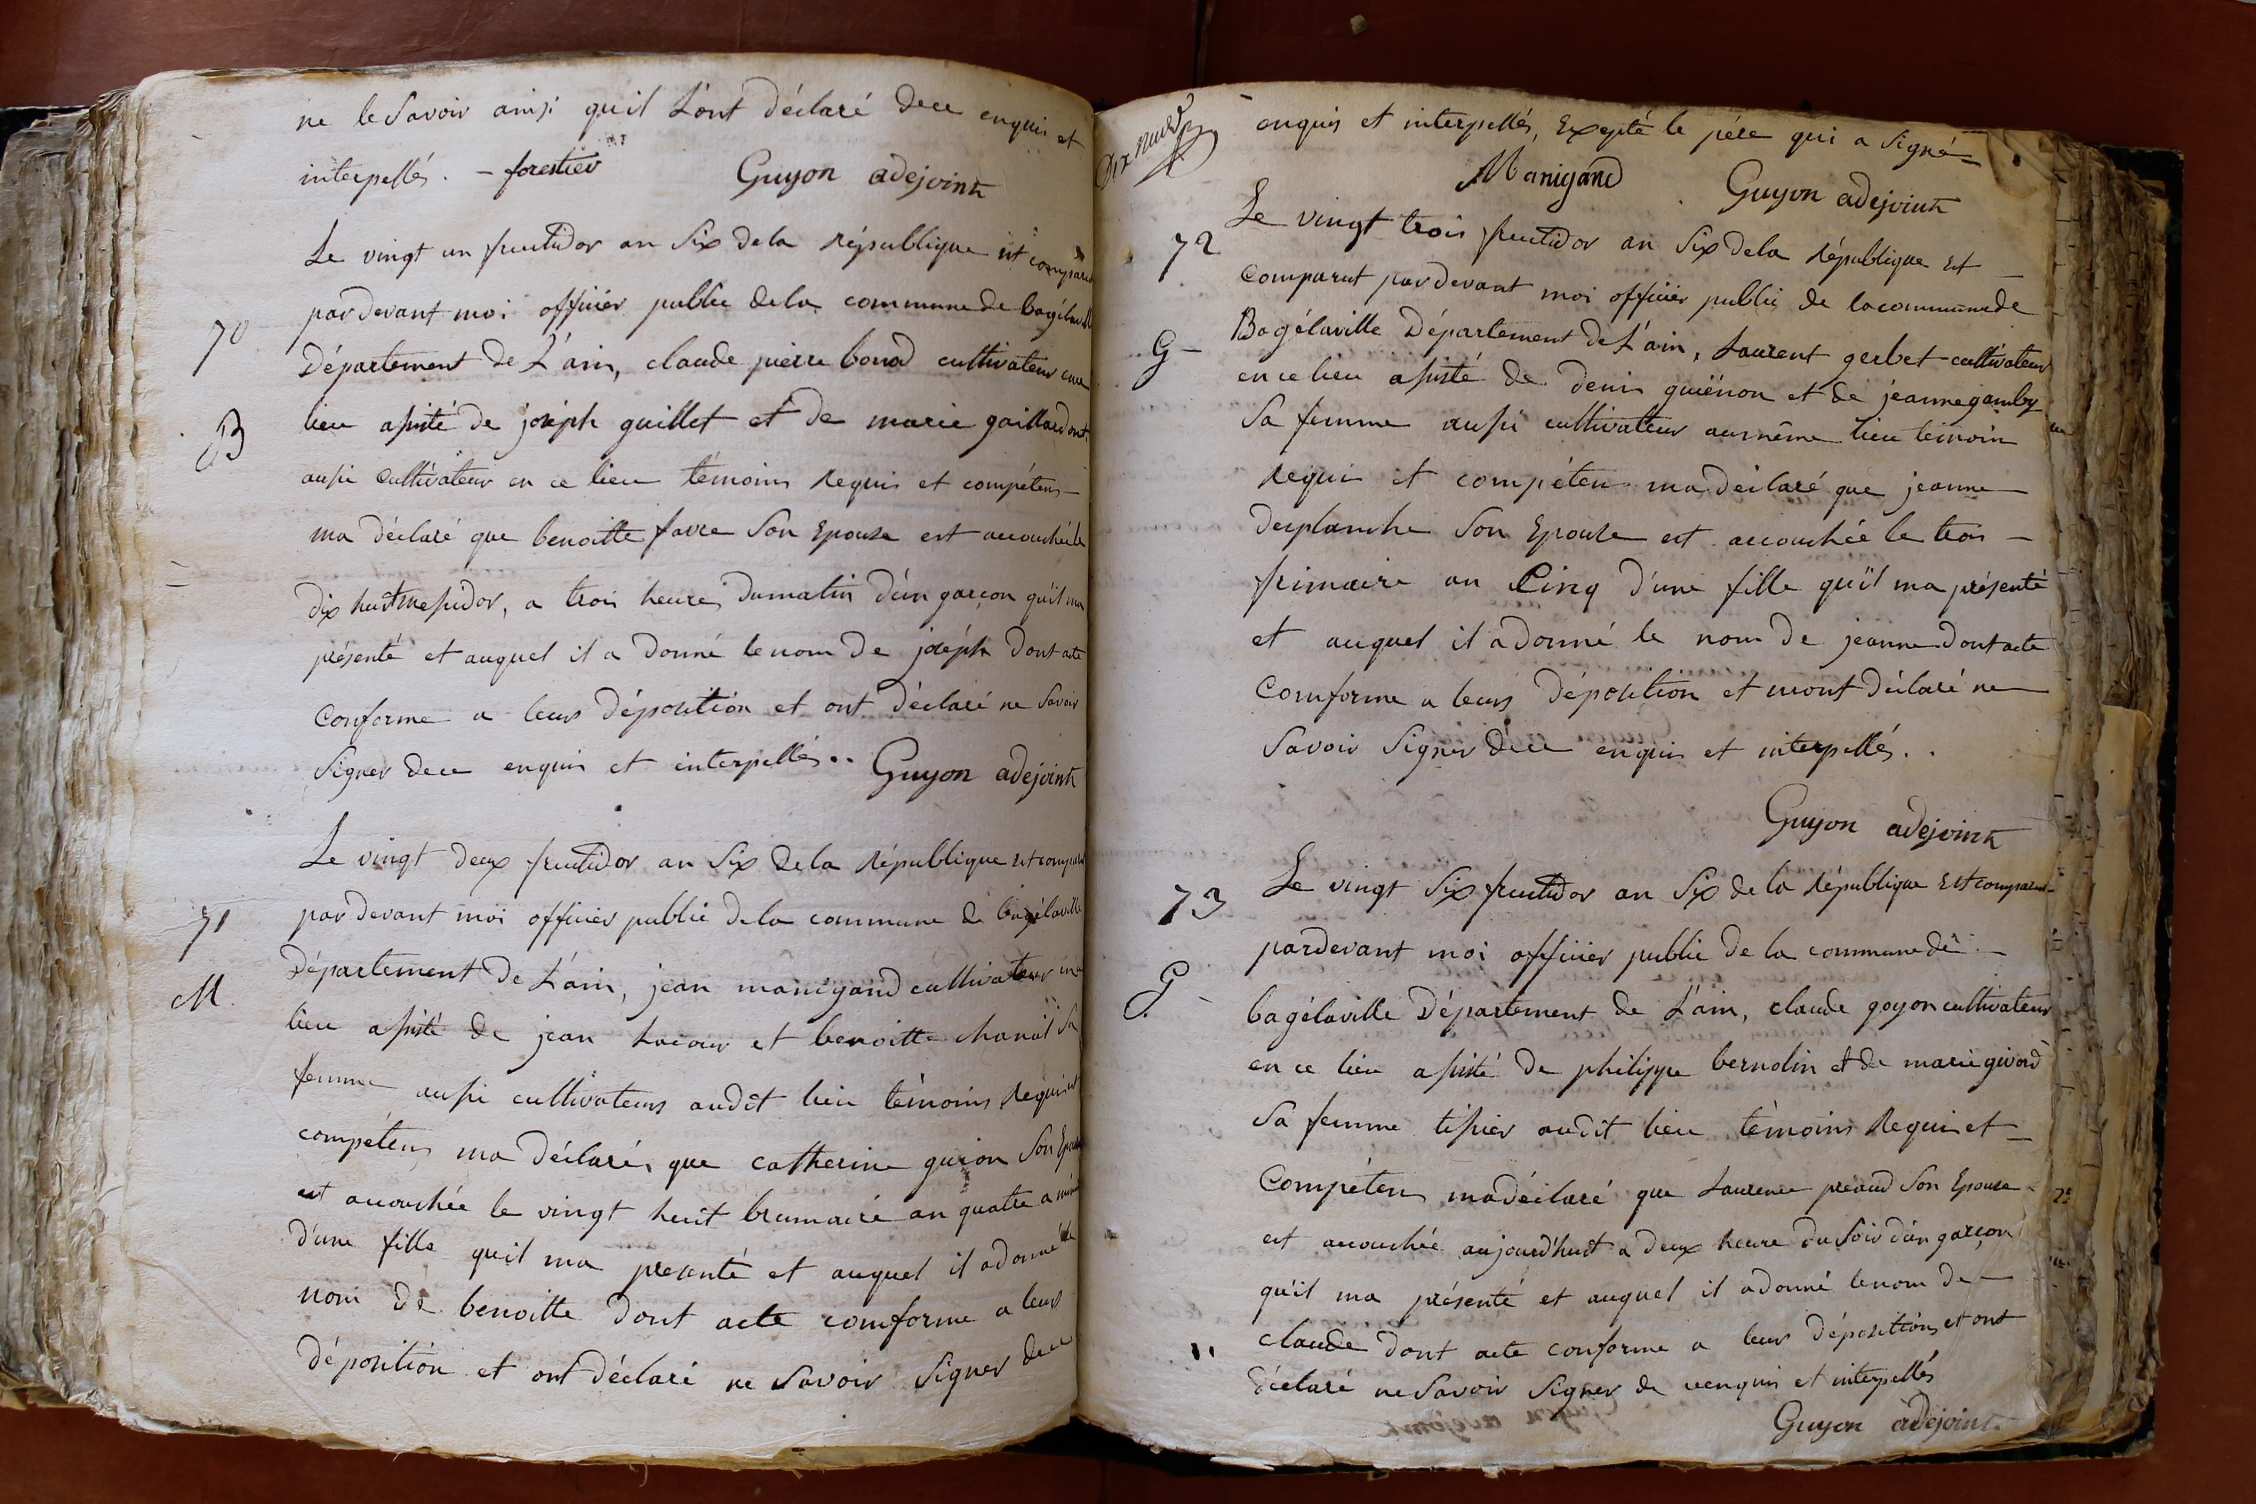 ne le Savoir ainsi qu'il L'ont déclaré dece enquis et
interpellés . - forestier Guyon adejoint
Le vingt un fructidor an Six dela République est comparu
pardevant moi officier public dela commune de Bagélaville
70
Département de L'ain, claude pierre bonod cultivateur ence
B
lieu assisté de joséph guillet et de marie gaillard ont
aussi Cultivateur en ce lieu témoins Requis et compétens
ma déclaré que benoitte favre Son Epouse est accouchée le
dix huit messidor, a trois heures dumatin d'un garçon qu'il ma
présenté et auquel il a donné lenom de joséph dont acte
Conforme a leur déposition et ont déclaré ne Savoir
Signer dece enquis et interpellés .. Guyon adejoint
Le vingt deux fructidor an Six dela République est comparu
71
pardevant moi officier public dela commune de bagélaville
M
Département de L'ain, jean manigand cultivateur ence
lieu assisté de jean et benoitte chanal Sa
femme aussi cultivateurs audit lieu témoins Requis et
compétens ma déclaré, que catherine guion Son Epouse
est accouchée le vingt huit brumaire an quatre a
d'une fille qu'il ma presenté et auquel il adonné le
nom de benoitte dont acte comforme a leur
déposition et ont déclaré ne Savoir Signer dece
Dix neuf
enquis et interpellés, Exepté le pére qui a Signé
Manigand Guyon adejoint
72
Le vingt trois fructidor an Six dela République est
Comparut pardevant moi officier public de lacommunede
G
Bagélaville Département de L'ain, Laurent gerbet cultivateur
en ce lieu assisté de denis guiénon et de jeanne gamby
Sa femme aussi cultivateur aumême lieu témoin
Requis et compéten ma déclaré que jeanne
desplanche Son Epouse est accouchée le trois
frimaire an Cinq d'une fille qu'il ma présenté
et auquel il adonné le nom de jeanne dont acte
Comforme a leurs déposition et mont déclaré ne
Savoir Signer dece enquis et interpellés . .
Guyon adejoint
73
Le vingt Six fructidor an Six de la République est comparu
pardevant moi officier public de la commune de
G
bagélaville Département de L'ain, claude goyon cultivateur
en ce lieu assisté de philippe bernolin et de marie givord
Sa femme tissier audit lieu témoins Requis et
Compétens madéclaré que Laurence preaud Son Epouse
est accouchée aujourd'huit a deux heure du Soir d'un garçon
qu'il ma présenté et auquel il adonné lenom de
claude dont acte conforme a leur dépositions et ont
déclaré ne Savoir Signer de cenquis et interpellés
Guyon adejoint